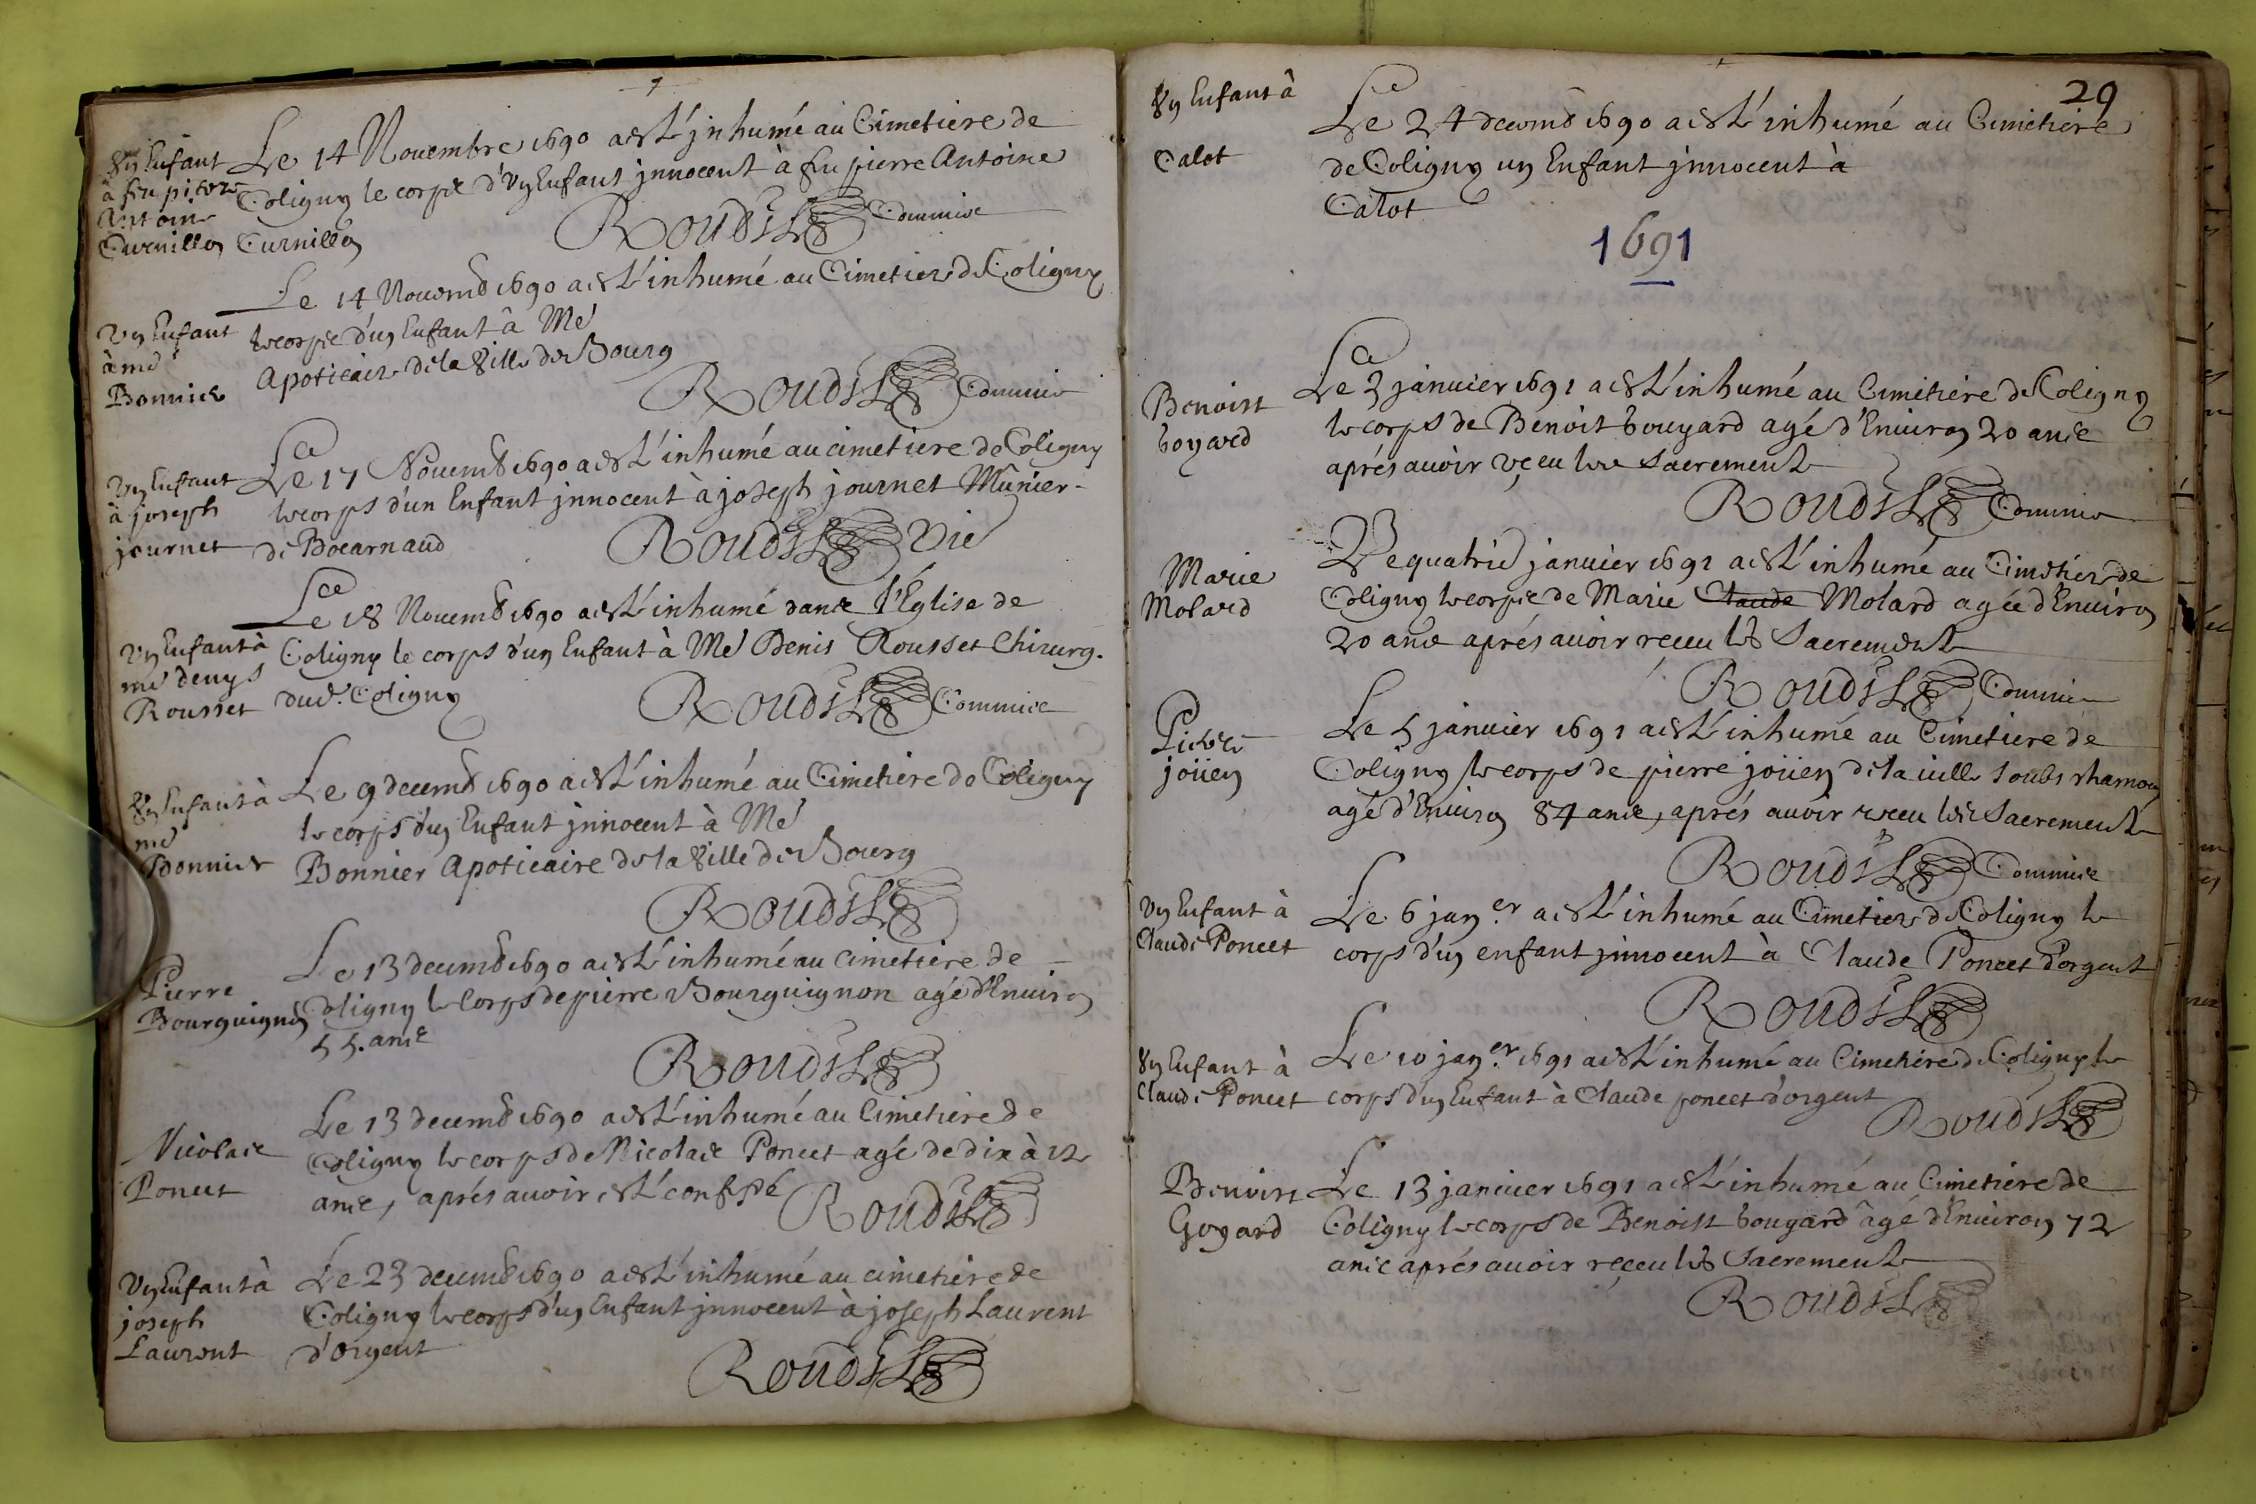 Vn Enfant
à feu pierre
Antoine
Curnillon
Le 14 Nouembre 1690 a esté jnhumé au Cimetiere de
Coligny le corps d'vn Enfant jnnocent à feu pierre Antoine
Curnillon
Roudet Commis
Vn Enfant
à me
Bonnier
Le 14 Nouemb 1690 a esté inhumé au Cimetiere de Coligny
le corps d'un Enfant à Me
Apoticaire de la Ville de Bourg
Roudet Commis
Vn Enfant
à joseph
journet
Le 17 Nouemb 1690 a esté inhumé au cimetiere de Coligny
le corps d'un Enfant jnnocent à joseph journet Munier
de Bocarnaud
Roudet Vic
Vn Enfant à
me denys
Rousset
Le 18 Nouemb 1690 a esté inhumé dans l'Eglise de
Coligny le corps d'un Enfant à Me Denis Rousset Chirurg.
dud. Coligny
Roudet Commis
Vn Enfant à
me
Bonnier
Le 9 decemb 1690 a esté inhumé au Cimetiere de Coligny
le corps d'un Enfant jnnocent à Me
Bonnier Apoticaire de la Ville de Bourg
Roudet
Pierre
Bourguignon
Le 13 decemb 1690 a esté inhumé au cimetiere de
Coligny le Corps de pierre Bourguignon agé d'Enuiron
55. ans
Roudet
Nicolas
Poncet
Le 13 decemb 1690 a esté inhumé au Cimetiere de
Coligny le corps de Nicolas Poncet agé de dix à 12
ans, aprés auoir esté confessé
Roudet
Vn Enfant à
joseph
Laurent
Le 23 decemb 1690 a esté inhumé au cimetiere de
Coligny le corps d'un Enfant jnnocent à joseph Laurent
d'Orgent
Roudet
29
Vn Enfant à
Calot
Le 24 decemb 1690 a esté inhumé au Cimetiere
de Coligny un Enfant jnnocent à
Calot
1691
Benoist
boyard
Le 3 januier 1691 a esté inhumé au Cimetiere de Coligny
le corps de Benoit bouyard agé d'Enuiron 20 ans
aprés auoir reçeu les Sacrements
Roudet Commis
Marie
Molard
Le quatrie januier 1691 a esté inhumé au Cimetiere de
Coligny le corps de Marie Claude Molard agée d'Enuiron
20 ans aprés auoir receu les Sacrements
Roudet Commis
Pierre
joüen
Le 5 januier 1691 a esté inhumé au Cimetiere de
Coligny le corps de pierre joüen de la uille soubs
agé d'Enuiron 84 ans, aprés auoir receu les Sacrements
Roudet Commis
Vn Enfant à
Claude Poncet
Le 6 jan.er a esté inhumé au Cimetiere de Coligny le
corps d'un enfant jnnocent à Claude Poncet d'orgent
Roudet
Vn Enfant à
Claude Poncet
Le 10 jan.er 1691 a esté inhumé au Cimetiere de Coligny le
corps d'un Enfant à Claude poncet d'orgent
Roudet
Benoist
Goyard
Le 13 januier 1691 a esté inhumé au Cimetiere de
Coligny le corps de Benoist bouyard âgé d'Enuiron 72
ans aprés auoir reçeu les Sacrements
Roudet